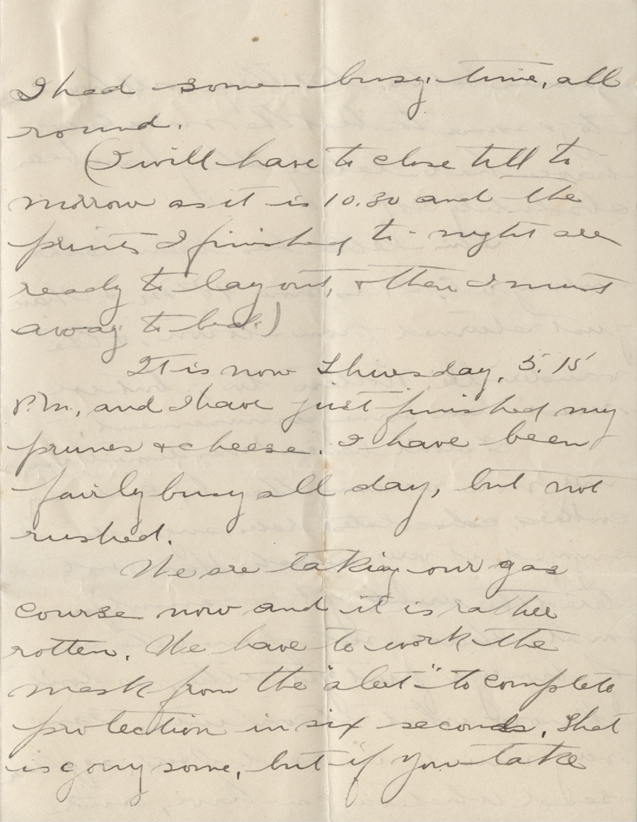 I had some busy time, all
round.
(I will have to close till to
morrow as it is 10.30 and the
prints I finished to-night are
ready to lay out, & then I must
away to bed.)
It is now Thursday, 5.15
P.M., and I have just finished my
prunes & cheese. I have been
fairly busy all day, but not
rushed.
We are taking our gas
course now and it is rather
rotten. We have to work the
mask from the "alert" to complete
protection in six seconds. That
is going some, but if you take